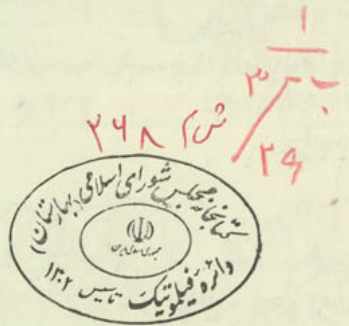 ۱
ب ۳
۲۹
ش م ۲۶۸
کتابخانه مجلس شورای اسلامی (بهارستان)
جمهوری اسلامی ایران
دائره فیلوتیک تاسیس ۱۳۰۲